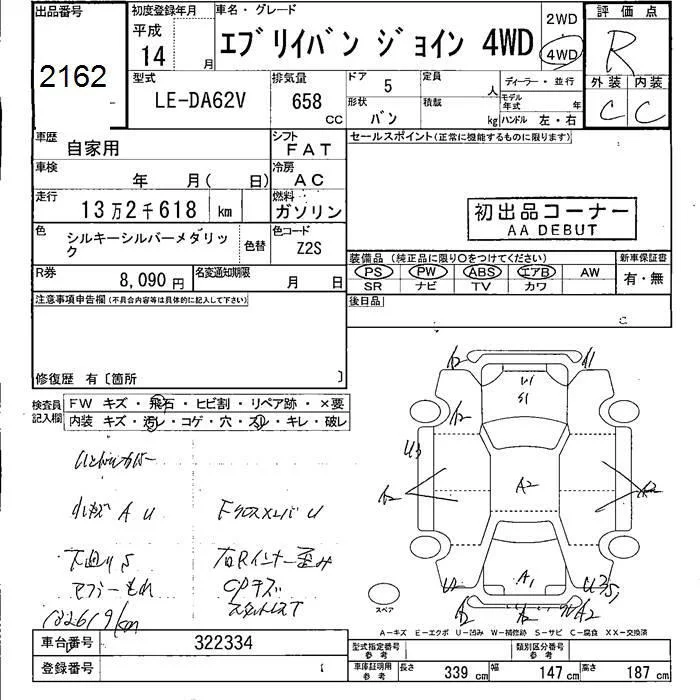 出品番号
2162
初度登録年月
平成
14 月
車名・グレード
エブリイバン ジョイン 4WD
2WD
4WD
評価点
R
外装 内装
C C
型式
LE-DA62V
排気量
658 CC
ドア 5
形状 バン
定員 人
積載 kg
ディーラー・並行
モデル年式 年
ハンドル 左・右
車歴
自家用
シフト
FAT
車検
年 月( 日)
冷房
AC
走行
13万2千618 km
燃料
ガソリン
色
シルキーシルバーメタリック
色替
色コード
Z2S
R券
8,090円
名変通知期限
月 日
セールスポイント(正常に機能するものに限ります)
初出品コーナー
AA DEBUT
装備品(純正品に限り○をつけてください)
PS PW ABS エアB AW
SR ナビ TV カワ
新車保証書
有・無
後日品
C
注意事項申告欄(不具合内容等は具体的に記入して下さい)
修復歴 有〔箇所 〕
検査員記入欄
FW キズ・飛石・ヒビ割・リペア跡・×要
内装 キズ・汚レ・コゲ・穴・スレ・キレ・破レ
小キズ A U
下廻りS
マフラーもれ
132619km
右Rインナー歪み
CPキズ
スタットレスT
A2
A1
U3
A2
A2
A2
A2
A1
U2
U3
S
A2
A2
A2
スペア
A-キズ E-エクボ U-凹み W-補修跡 S-サビ C-腐食 XX-交換済
車台番号
322334
登録番号
型式指定番号 参考
類別区分番号 参考
車庫証明用 参考
長さ 339 cm 幅 147 cm 高さ 187 cm